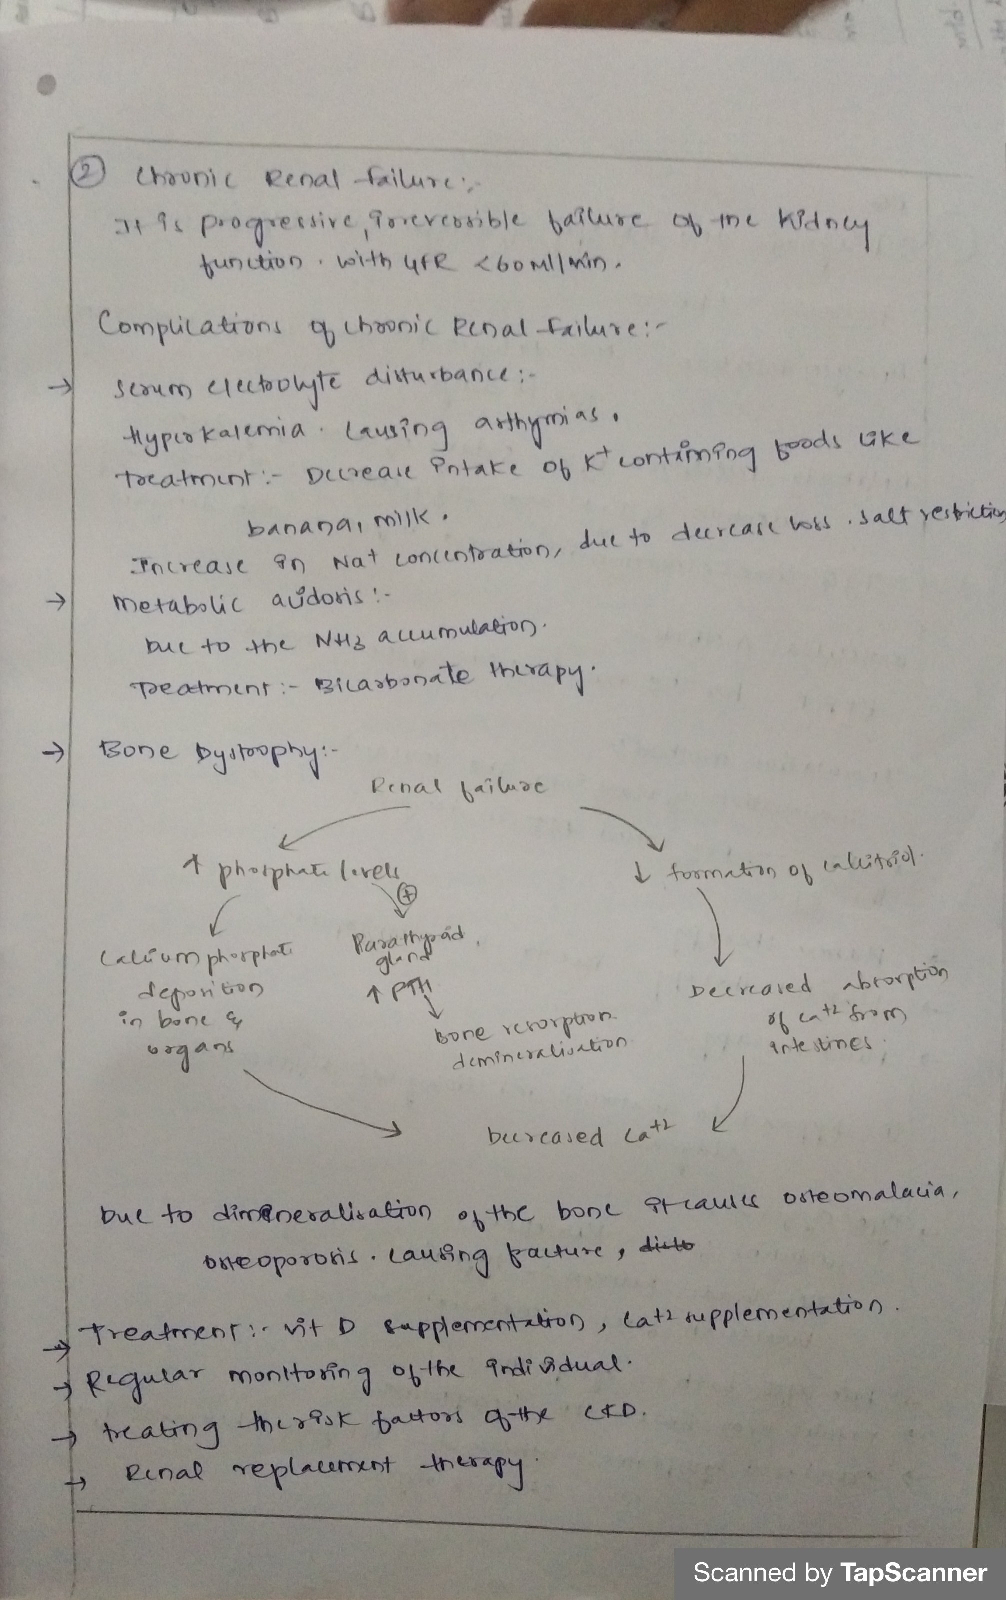 ② Chronic Renal failure:-
It is progressive, irreversible failure of the kidney
function. with GFR <60ml/min.
Complications of chronic Renal failure:-
→ serum electrolyte disturbance:-
Hyperkalemia. causing arthymias.
Treatment:- Decrease intake of K+ containing foods like
banana, milk.
Increase in Na+ concentration, due to decrease loss. salt restriction
→ metabolic acidosis:-
Due to the NH3 accumulation.
Treatment:- Bicarbonate therapy.
→ Bone Dystrophy:-
Renal failure
↑ phosphate levels
↓ formation of calcitriol.
⊕
Calcium phosphate
deposition
in bone &
organs
Parathyroid
gland
↑ PTH
Bone resorption
demineralisation
Decreased absorption
of ca+2 from
intestines.
Decreased ca+2
Due to dimineralisation of the bone it causes osteomalacia,
osteoporosis. causing facture,
→ Treatment:- vit D supplementation, ca+2 supplementation.
→ Regular monitoring of the individual.
→ treating the risk factors of the CKD.
→ Renal replacement therapy.
Scanned by TapScanner